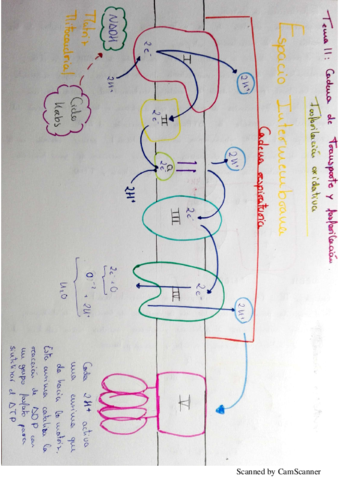 Tema 11: Cadena de Transporte y fosforilación
fosforilación oxidativa
Espacio Intermembrana
Cadena respiratoria
2H⁺
2H⁺
2H⁺
I
2e⁻
II
2e⁻
Q
2e⁻
III
2e⁻
IV
2e⁻
V
NADH
2H⁺
2H⁺
Matriz
Mitocondrial
Ciclo
Krebs
2e⁻ + O
O⁻² + 2H⁺
H₂O
Cada 2H⁺ activa
una enzima que
da hacia la matriz.
Esta enzima cataliza la
reacción de ADP con
un grupo fosfato para
sintetizar el ATP
Scanned by CamScanner